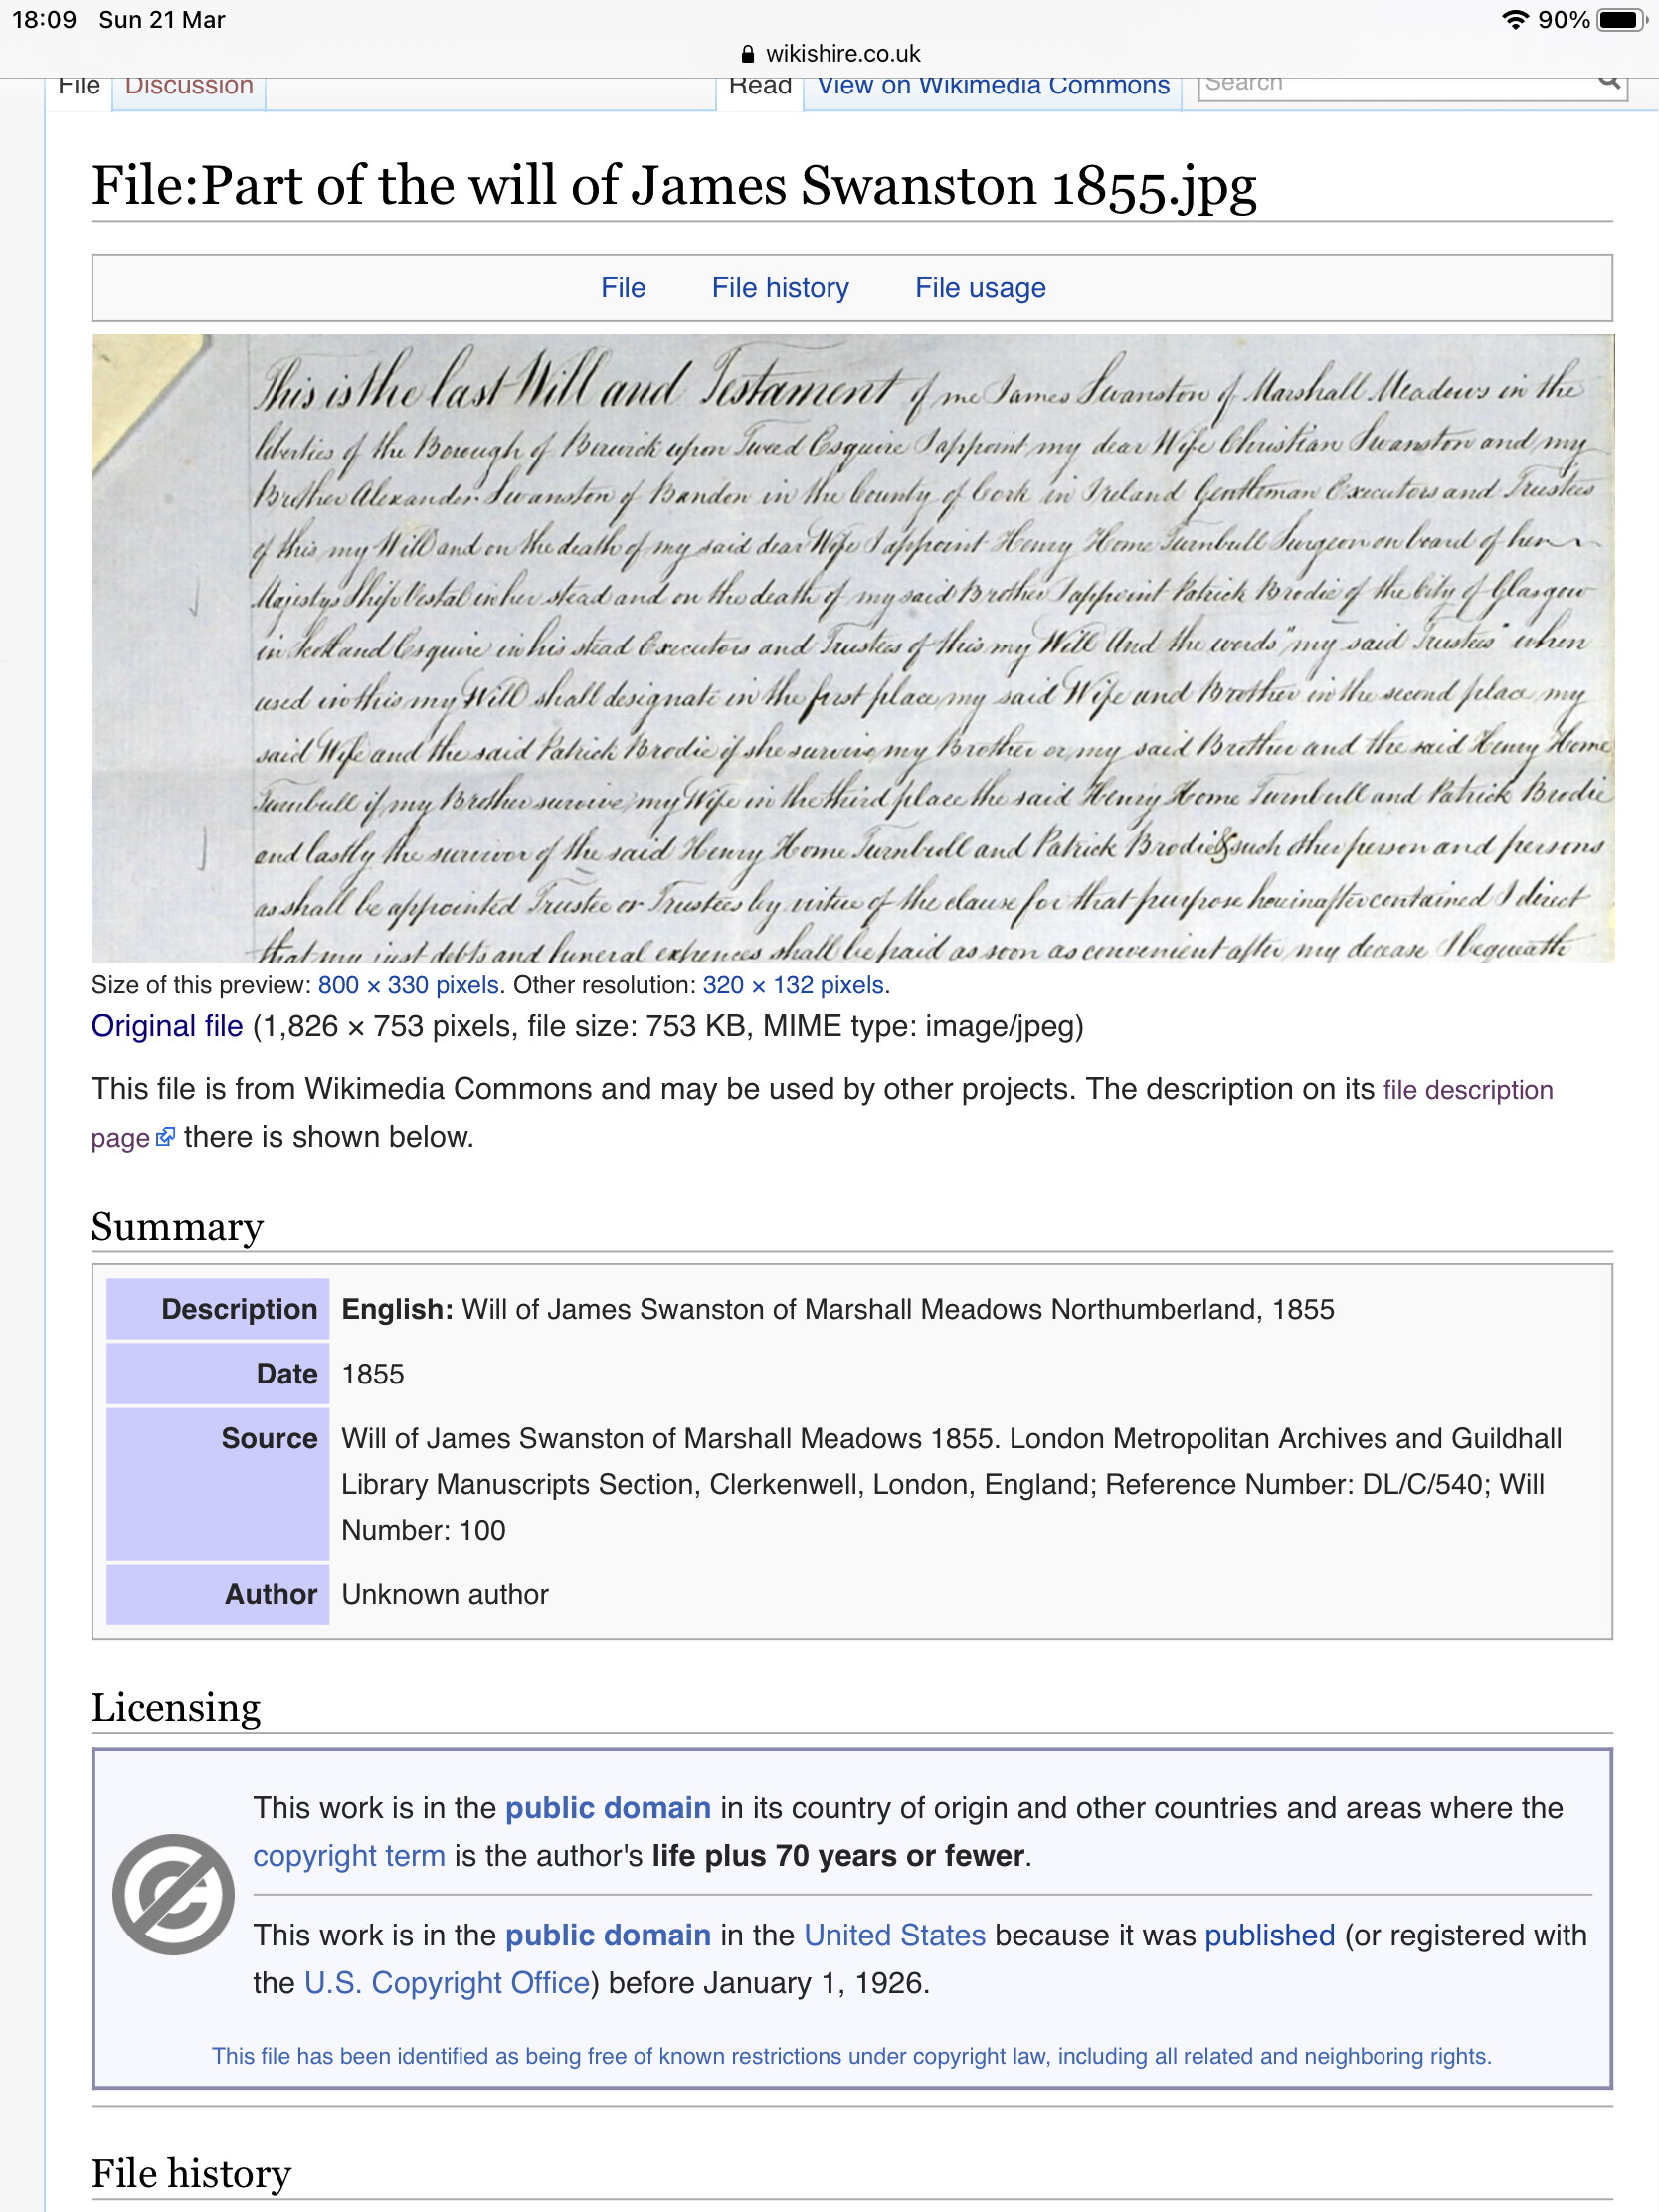 18:09 Sun 21 Mar
90%
wikishire.co.uk
File Discussion Read View on Wikimedia Commons Search
File:Part of the will of James Swanston 1855.jpg
File File history File usage
This is the last Will and Testament of me James Swanston of Marshall Meadows in the
liberties of the Borough of Berwick upon Tweed Esquire I appoint my dear Wife Christian Swanston and my
Brother Alexander Swanston of Bandon in the County of Cork in Ireland Gentleman Executors and Trustees
of this my Will and on the death of my said dear Wife I appoint Henry Home Turnbull Surgeon on board of her
Majestys Ship Vestal in her stead and on the death of my said Brother I appoint Patrick Brodie of the City of Glasgow
in Scotland Esquire in his stead Executors and Trustees of this my Will And the words "my said Trustees" when
used in this my Will shall designate in the first place my said Wife and Brother in the second place my
said Wife and the said Patrick Brodie if she survive my Brother or my said Brother and the said Henry Home
Turnbull if my Brother survive my Wife in the third place the said Henry Home Turnbull and Patrick Brodie
and lastly the survivor of the said Henry Home Turnbull and Patrick Brodie & such other person and persons
as shall be appointed Trustee or Trustees by virtue of the clause for that purpose hereinafter contained I direct
that my just debts and funeral expences shall be paid as soon as convenient after my decease I bequeath
Size of this preview: 800 × 330 pixels. Other resolution: 320 × 132 pixels.
Original file (1,826 × 753 pixels, file size: 753 KB, MIME type: image/jpeg)
This file is from Wikimedia Commons and may be used by other projects. The description on its file description
page there is shown below.
Summary
Description English: Will of James Swanston of Marshall Meadows Northumberland, 1855
Date 1855
Source Will of James Swanston of Marshall Meadows 1855. London Metropolitan Archives and Guildhall
Library Manuscripts Section, Clerkenwell, London, England; Reference Number: DL/C/540; Will
Number: 100
Author Unknown author
Licensing
This work is in the public domain in its country of origin and other countries and areas where the
copyright term is the author's life plus 70 years or fewer.
This work is in the public domain in the United States because it was published (or registered with
the U.S. Copyright Office) before January 1, 1926.
This file has been identified as being free of known restrictions under copyright law, including all related and neighboring rights.
File history